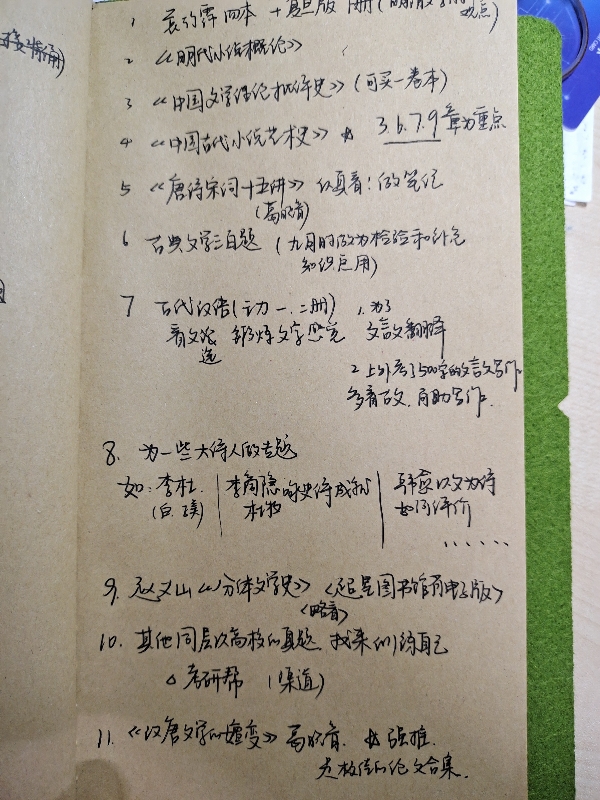 接背诵)
1 袁行霈四本 + 复旦版 册(明清
观点)
2 《明代小说概论》
3 《中国文学理论批评史》(可买一卷本)
4 《中国古代小说艺术史》☆ 3.6.7.9章为重点
5 《唐诗宋词十五讲》 认真看!做笔记
(葛晓音)
6 古典文学三百题 (九月时做为检验和补充
知识点用)
7 古代汉语(王力 一、二册) 1.为了
看文选 锻炼文字感觉 文言文翻译
2 上外考了500字的文言文写作
多看古文,有助写作.
8. 为一些大诗人做专题
如:李杜. 李商隐咏史诗成就 韩愈以文为诗
(白、) 咏物 如何评价
......
9. 赵义山《分体文学史》<超星图书馆有电子版>
<略看>
10. 其他同层次高校的真题 找来训练自己
△ 考研帮 (渠道)
11. 《汉唐文学的嬗变》葛晓音. ☆ 强推.
是极佳的论文合集.